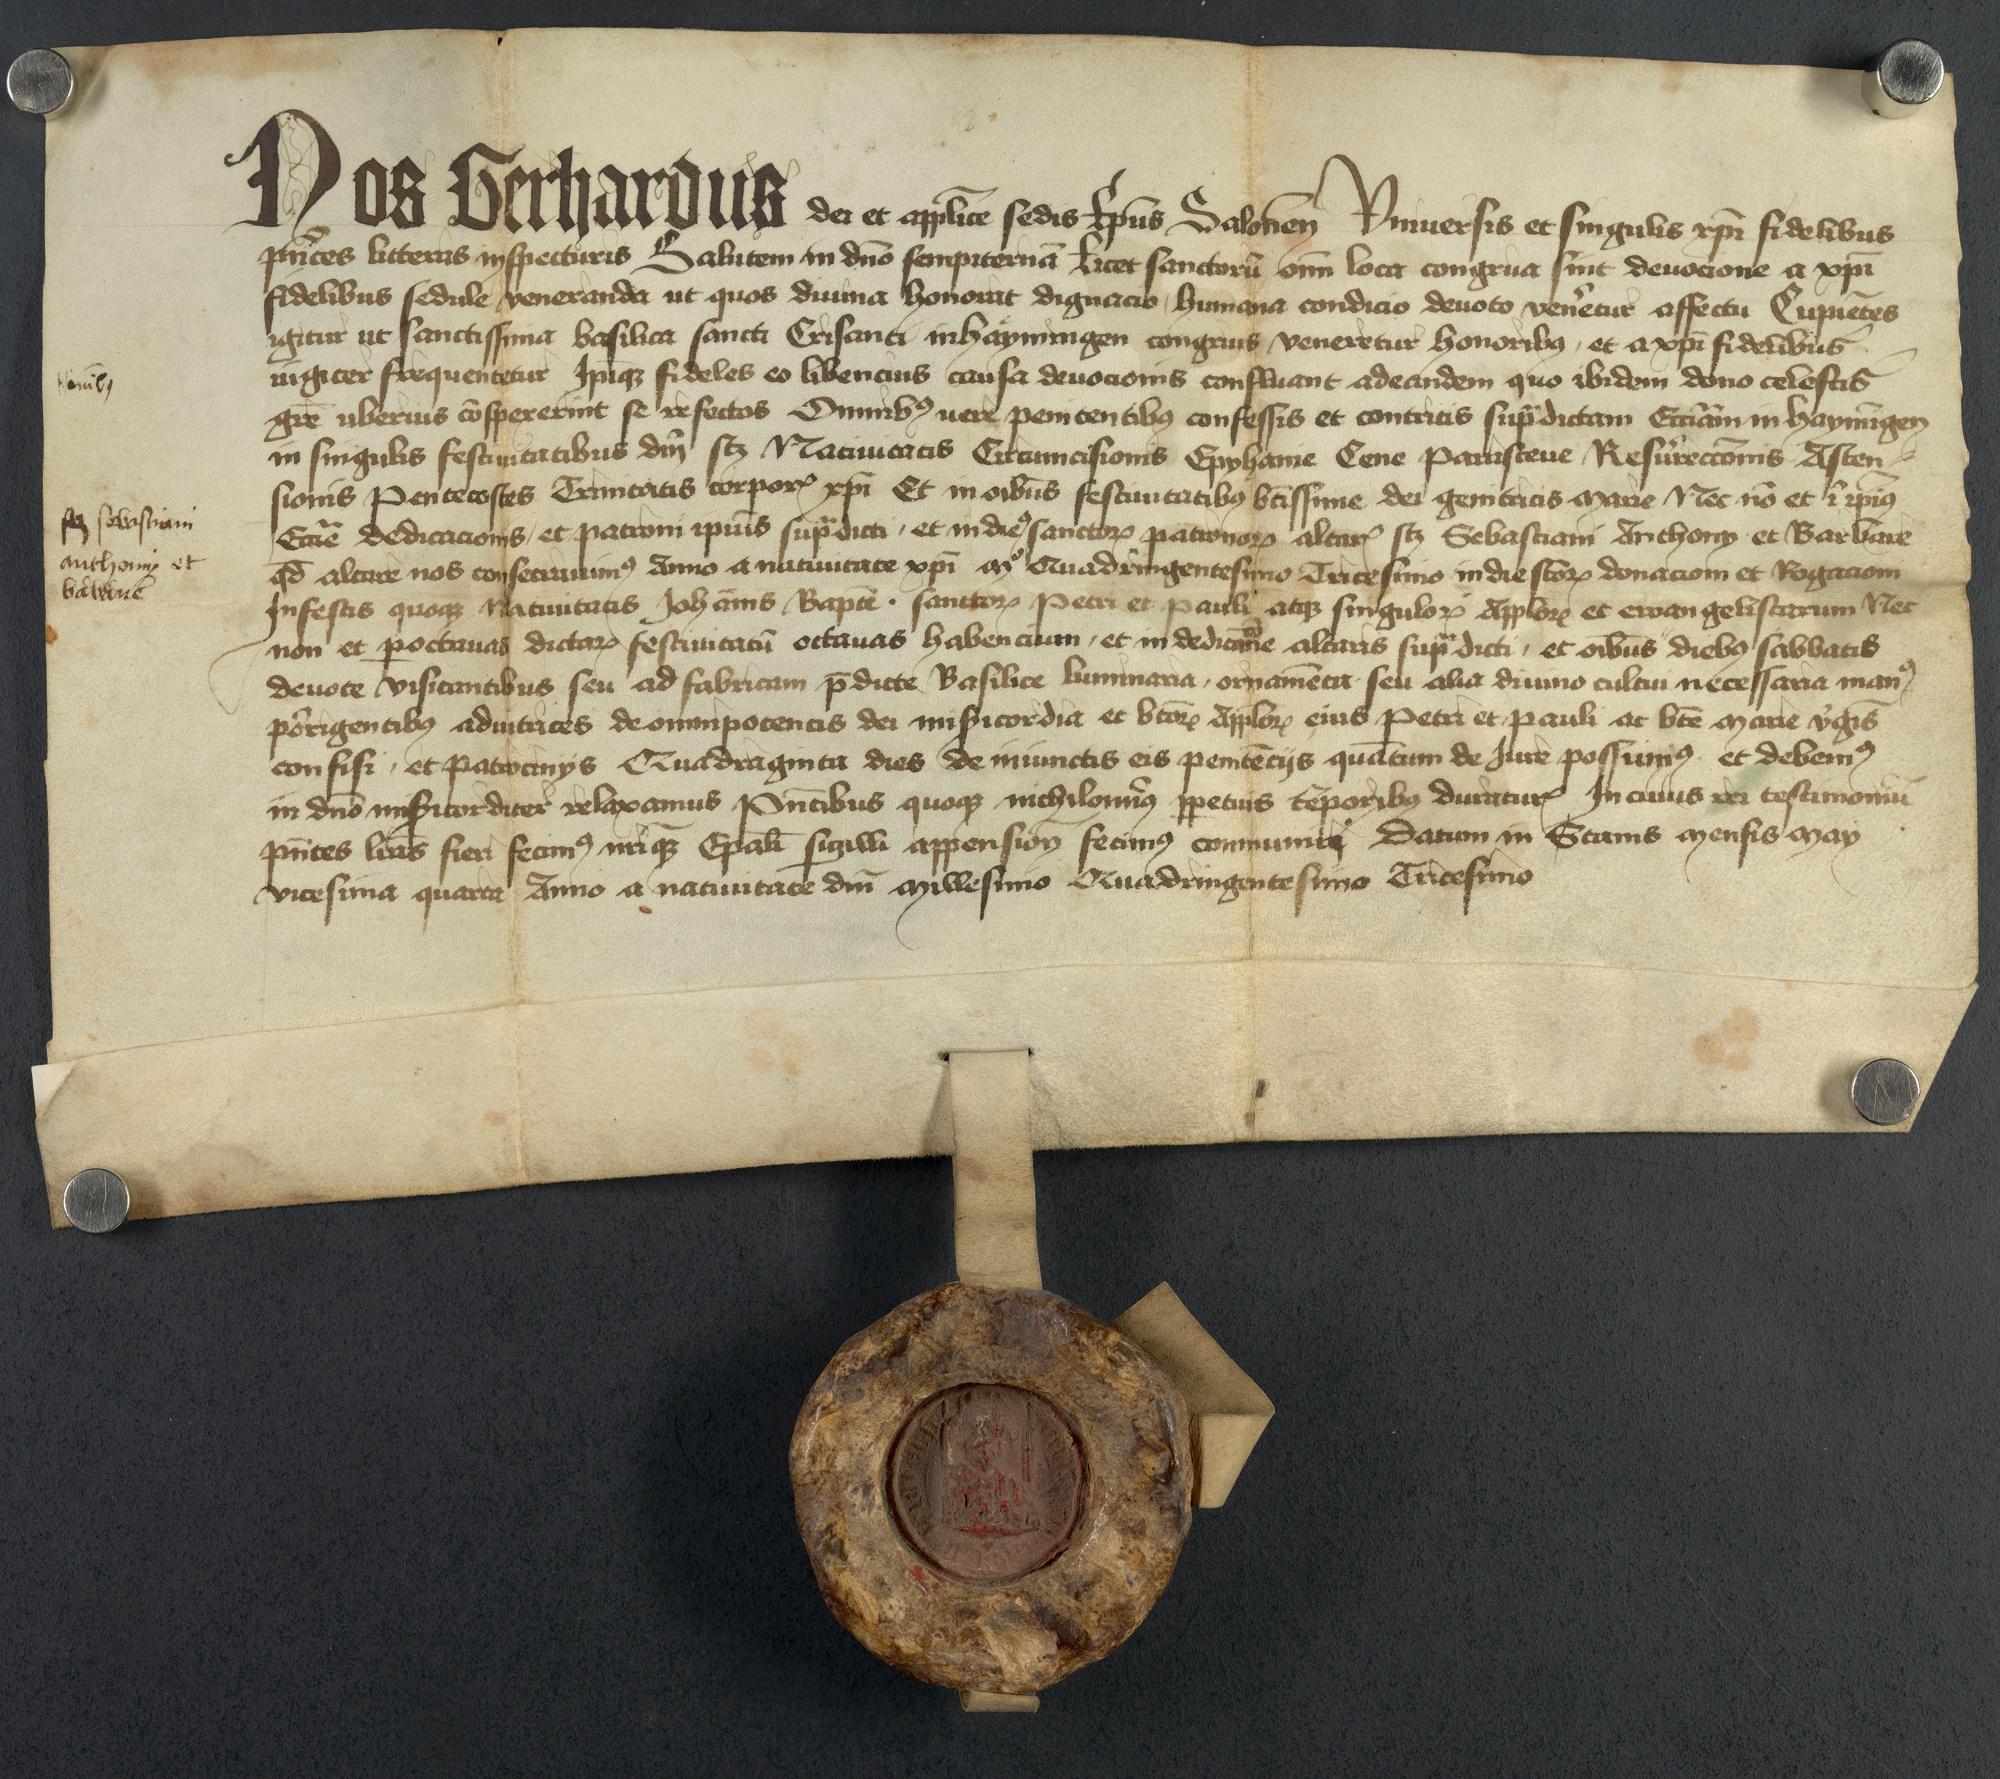 Nos Gerhardus dei et applice sedis Eps Salonen Vniuersis et singulis xpi fidelibus
pntes litteras inspecturis Salutem in dno sempiternā Licet sanctorū oim loca congrua sint deuocione a xpi
fidelibus sedule veneranda ut quos diuina honorat dignacio humana condicio deuoto venetur affectu Cupiētes
igitur ut sanctissima basilica sancti Crisanti in haymingen congruis veneretur honoribꝫ et a xpi fidelibus
iugiter frequentetur Ipiqꝫ fideles eo libencius causa deuocionis confluant ad eandem quo ibidem dono celestis
grē uberius cōspexerint se refectos Omnibꝰ uere penitentibꝫ confessis et contritis supdictam Ecciam in haymīgen
in singulis festiuitatibus dni scꝫ Natiuitatis Circumcisionis Epyhanie Cene Parasceue Resurrectōnis Ascen-
sionis Pentecostes Trinitatis corporꝭ xpi Et in oibus festiuitatibꝫ btissime dei genitricis marie Nec nō et ī ipiꝰ
Eccie dedicacionis et patroni ipius supdicti et in dieꝫ sanctorꝫ patronorꝫ altarꝭ scꝫ Sebastiani Anthony et Barbare
qd altare nos consecrauimꝰ Anno a natiuitate xpi mꝰ Quadringentesimo Tricesimo in die sctorꝫ donaciom et Rogaciom
In festis quoqꝫ Natiuitatis Johānis Bapte · sanctorꝫ Petri et pauli atqꝫ singulorꝫ Applorꝫ et ewangelistarum Nec
non et p octauas dictarꝫ festiuitatū octauas habencium et in dedicacōne altaris supdicti et oibus diebꝫ sabbatis
deuote visitantibus seu ad fabricam pdicte Basilice luminaria ornamēta seu alia diuino cultui necessaria manꝰ
porrigentibꝫ adiutrices de omnipotentis dei misicordia et btorꝫ Applorꝫ eius Petri et pauli ac bte marie vgis
confisi et patrocinijs Quadraginta dies de iniunctis eis penitēcijs quātum de Jure possumꝰ et debemꝰ
in dno misicorditer relaxamus Pntibus quoqꝫ nichilomiꝰ ppetuis tēporibꝫ duraturꝭ In cuius rei testimoniū
pntes lras fieri fecimꝰ nriqꝫ Epali sigilli appension fecimꝰ communiri Datum in Stams mensis may
vicesima quarta Anno a natiuitate dni millesimo Quadringentesimo Tricesimo
scꝫ sebastiani
anthony et
barbare